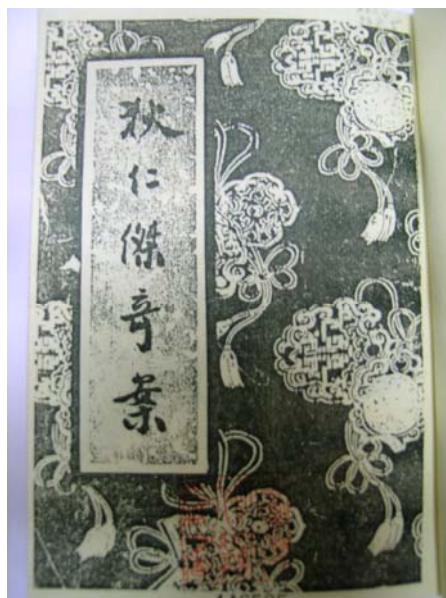 狄仁傑奇案